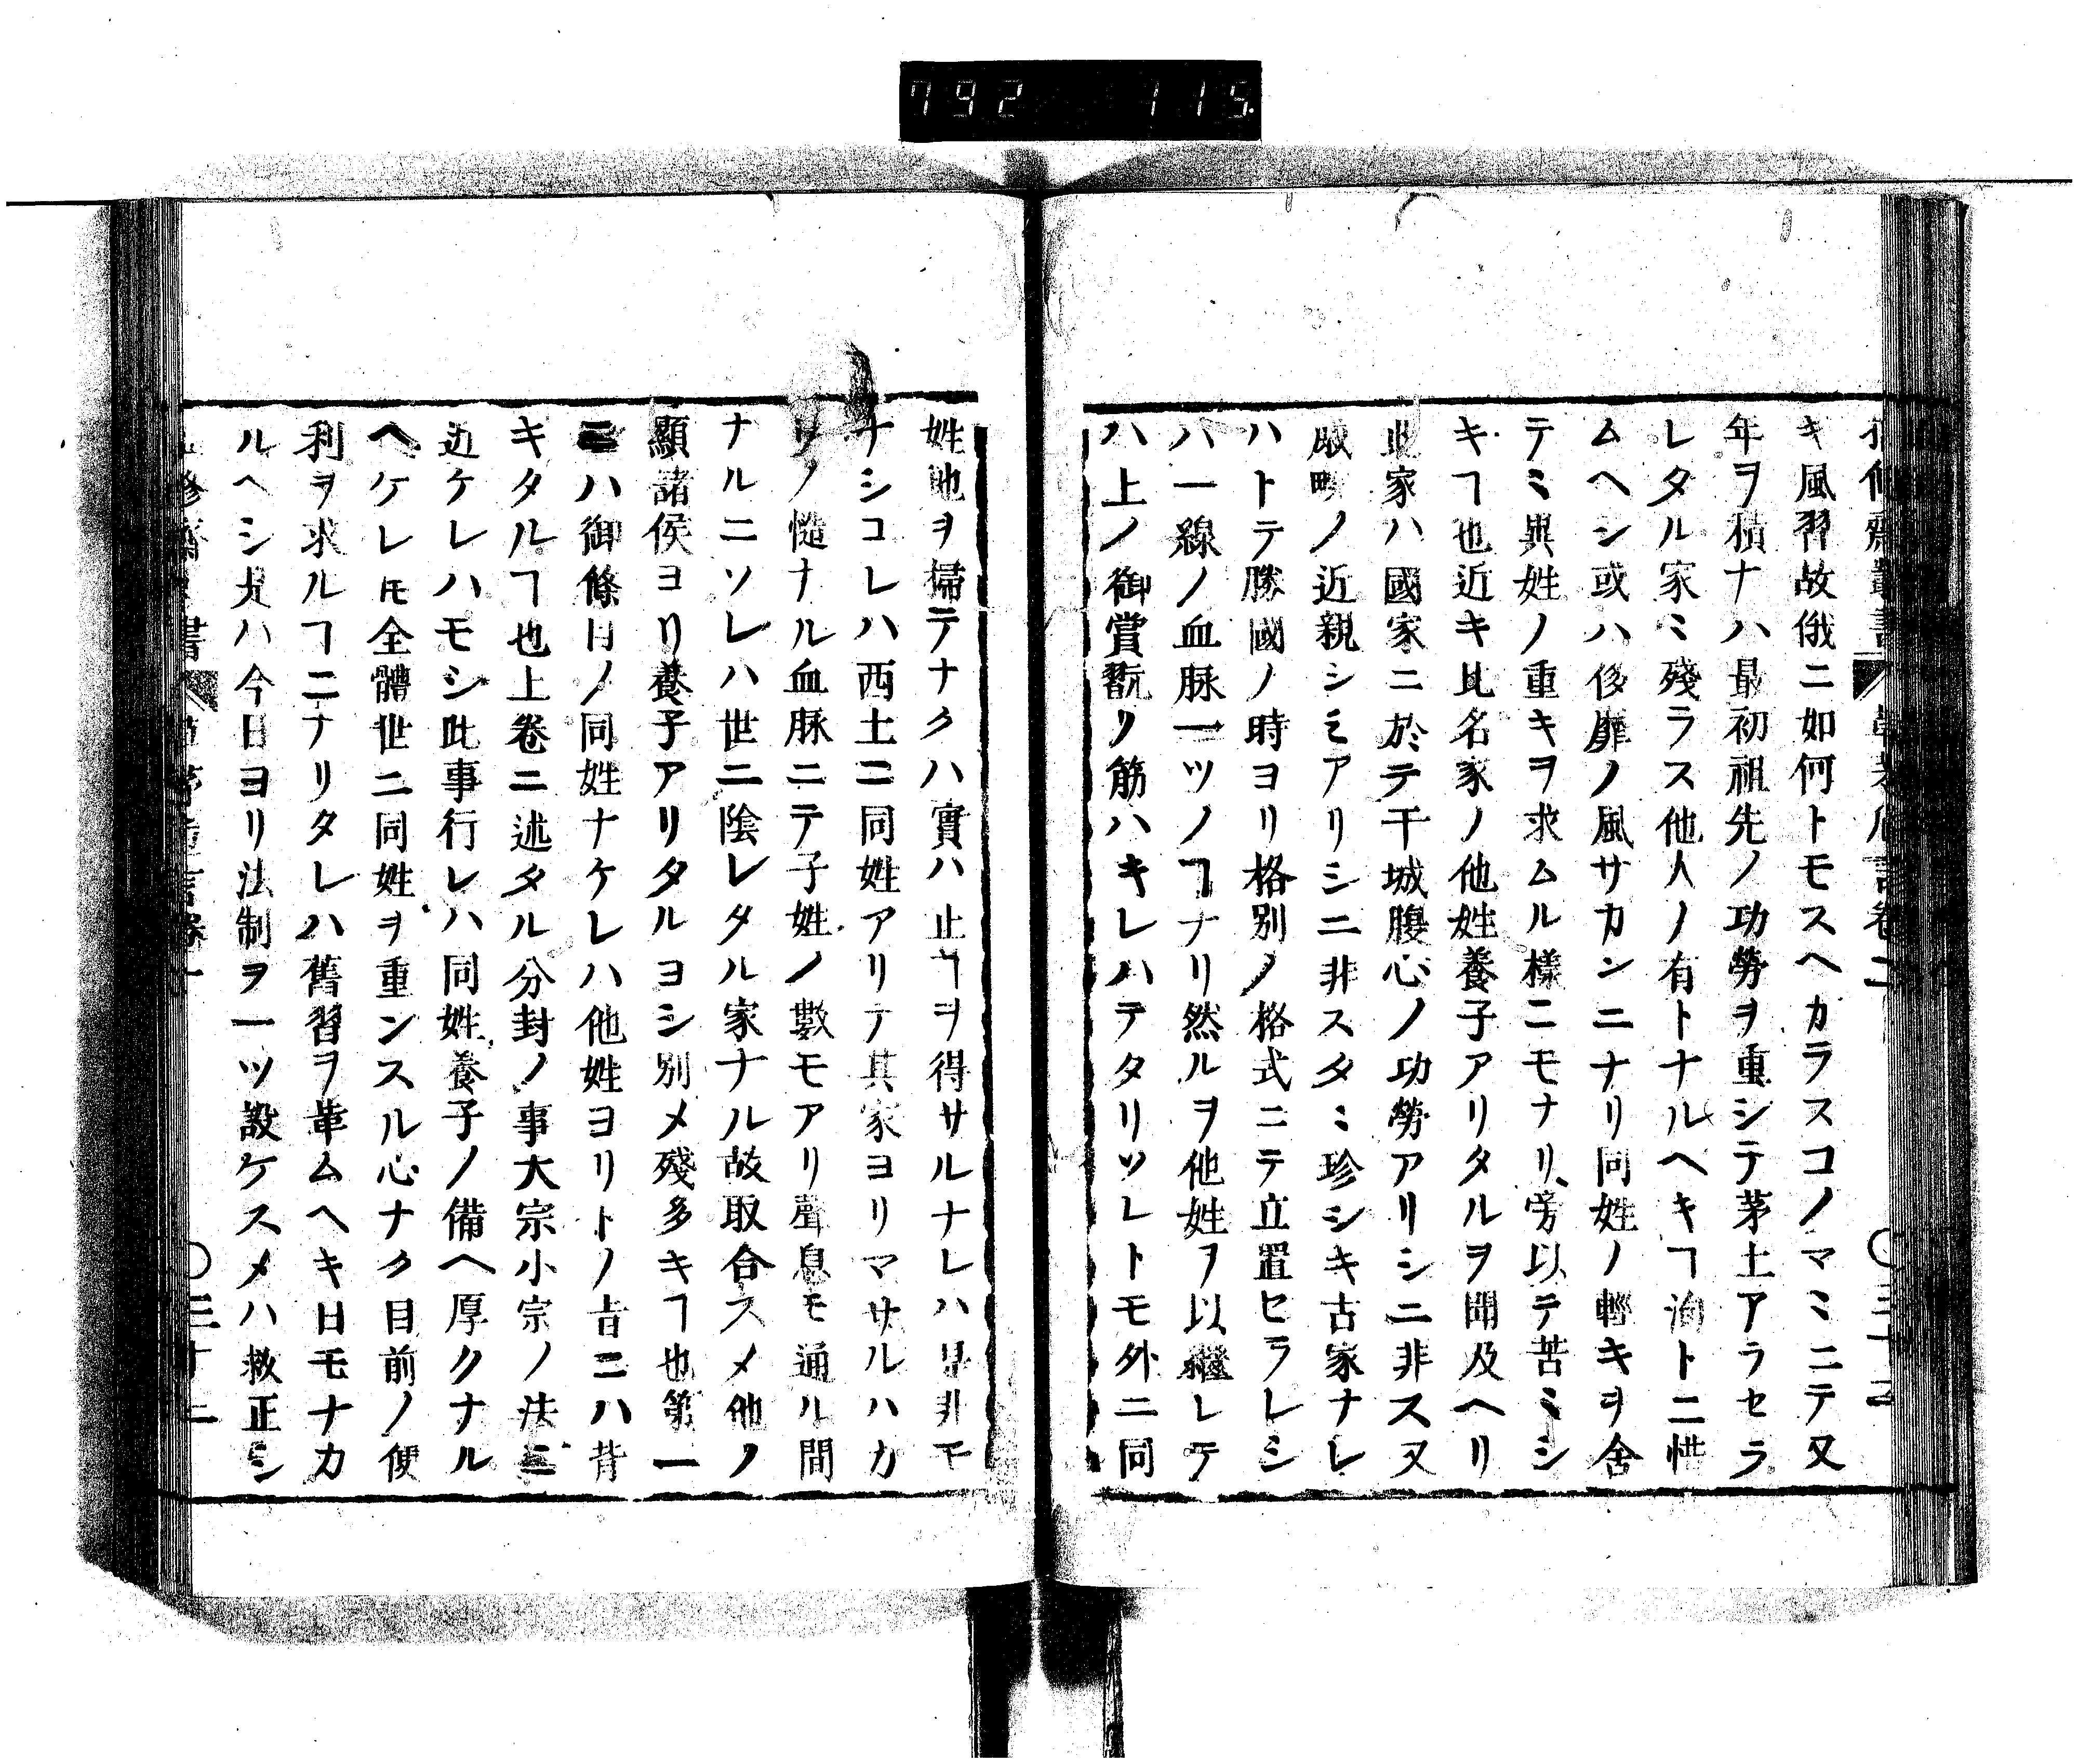 792 115
キ風習故俄ニ如何トモスヘカラスコノマミニテ又
年ヲ積ナハ最初祖先ノ功勞ヲ重シテ茅土アラセラ
レタル家ミ殘ラス他人ノ有トナルヘキヿ洵トニ惜
ムヘシ或ハ侈靡ノ風サカンニナリ同姓ノ輕キヲ舍
テミ異姓ノ重キヲ求ムル樣ニモナリ旁以テ苦ミシ
キヿ也近キ比名家ノ他姓養子アリタルヲ聞及ヘリ
此家ハ國家ニ於テ干城腹心ノ功勞アリシニ非ス又
畎畝ノ近親シミアリシニ非スタミ珍シキ古家ナレ
ハトテ勝國ノ時ヨリ格別ノ格式ニテ立置セラレシ
ハ一線ノ血脉一ツノヿナリ然ルヲ他姓ヲ以繼レテ
ハ上ノ御賞翫ノ筋ハキレハテタリツレトモ外ニ同
姓地ヲ掃テナクハ實ハ止ヿヲ得サルナレハ是非モ
ナシコレハ西土ニ同姓アリテ其家ヨリマサルハカ
リノ慥ナル血脉ニテ子姓ノ數モアリ聲息モ通ル間
ナルニソレハ世ニ陰レタル家ナル故取合スメ他ノ
顯諸侯ヨリ養子アリタルヨシ別メ殘多キヿ也第一
ニハ御條目ノ同姓ナケレハ他姓ヨリトノ旨ニハ背
キタルヿ也上卷ニ述タル分封ノ事大宗小宗ノ法ニ
近ケレハモシ此事行レハ同姓養子ノ備ヘ厚クナル
ヘケレ𪜈全體世ニ同姓ヲ重ンスル心ナク目前ノ便
利ヲ求ルヿニナリタレハ舊習ヲ革ムヘキ日モナカ
ルヘシ尤ハ今日ヨリ法制ヲ一ツ設ケスメハ救正シ